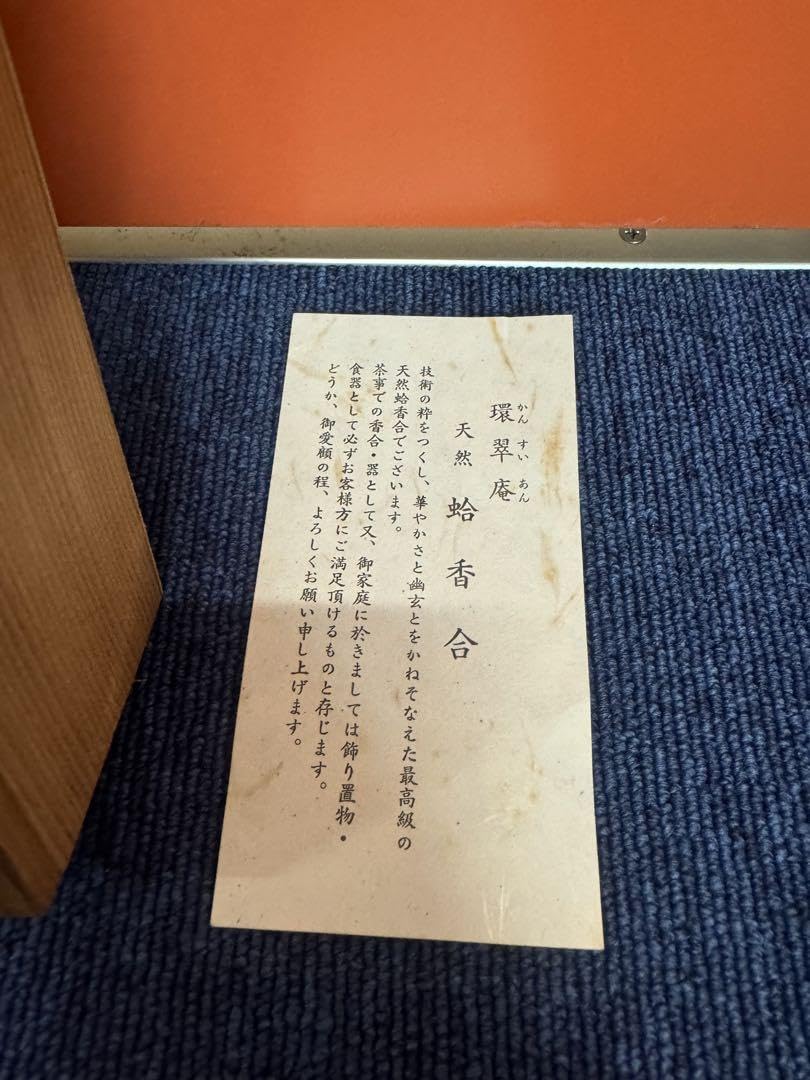 環翠庵
かんすいあん
天然 蛤香合
技術の粋をつくし、華やかさと幽玄とをかねそなえた最高級の
天然蛤香合でございます。
茶事での香合・器として又、御家庭に於きましては飾り置物・
食器として必ずお客様方にご満足頂けるものと存じます。
どうか、御愛顧の程、よろしくお願い申し上げます。